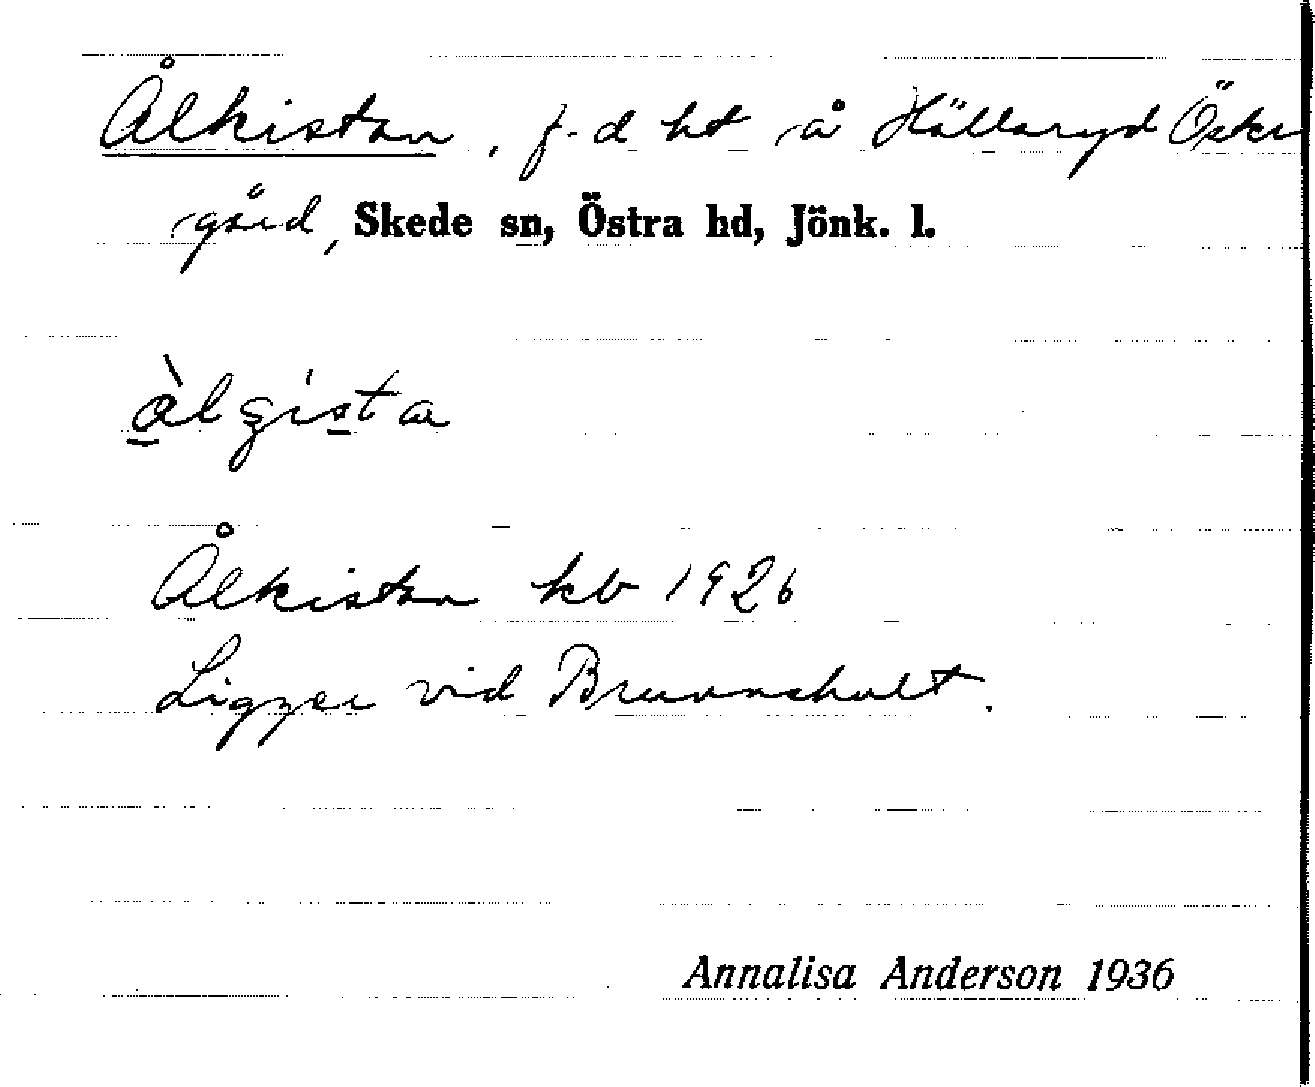 Ålkistan, f.d ht å Hällaryd Öster
gård, Skede sn, Östra hd, Jönk. l.
àlgista
Ålkistan kb 1926
Ligger vid Brunnshult.
Annalisa Anderson 1936